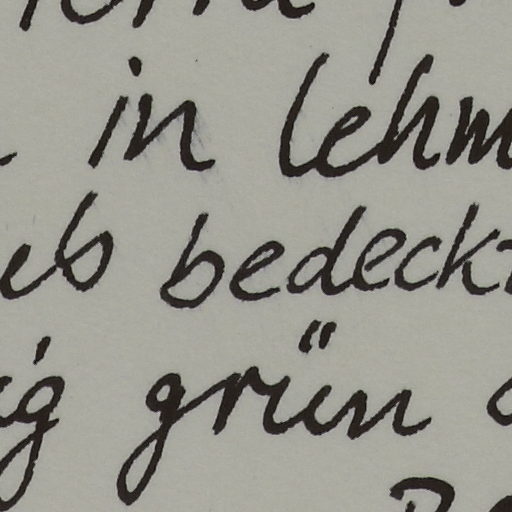 in lehm
eb bedeckt
ig grün